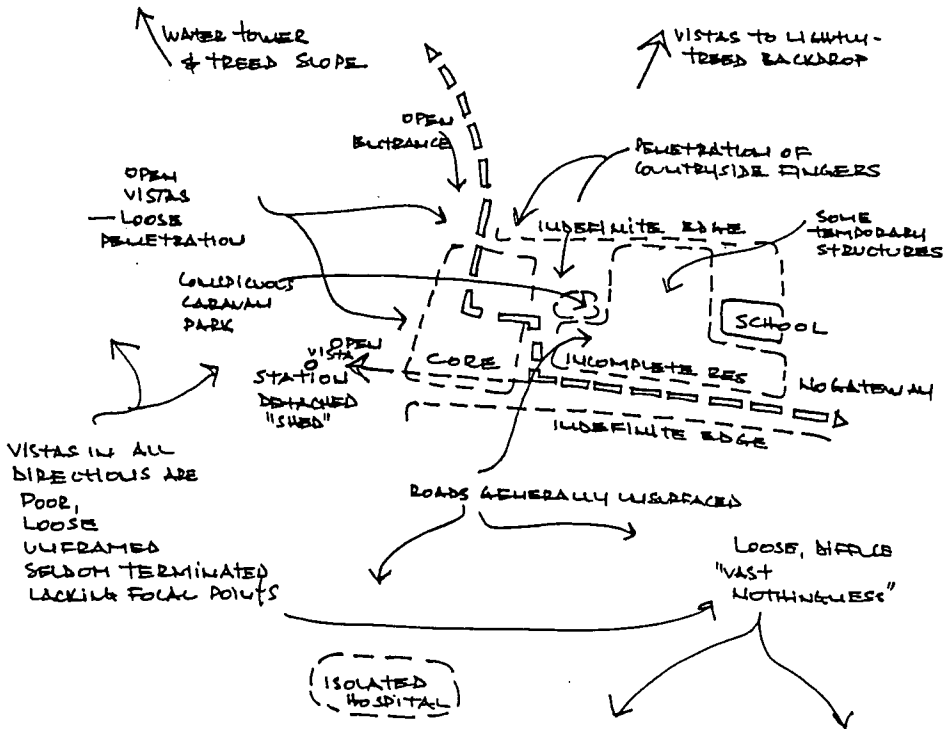 WATER TOWER
& TREED SLOPE
VISTAS TO LIGHTLY-
TREED BACKDROP
OPEN
ENTRANCE
PENETRATION OF
COUNTRYSIDE FINGERS
OPEN
VISTAS
— LOOSE
PENETRATION
INDEFINITE EDGE
SOME
TEMPORARY
STRUCTURES
CONSPICUOUS
CARAVAN
PARK
SCHOOL
OPEN
VISTA
STATION
DETACHED
"SHED"
CORE
INCOMPLETE RES
NO GATEWAY
INDEFINITE EDGE
VISTAS IN ALL
DIRECTIONS ARE
POOR,
LOOSE
UNFRAMED
SELDOM TERMINATED
LACKING FOCAL POINTS
ROADS GENERALLY UNSURFACED
LOOSE, DIFFUCE
"VAST
NOTHINGNESS"
ISOLATED
HOSPITAL